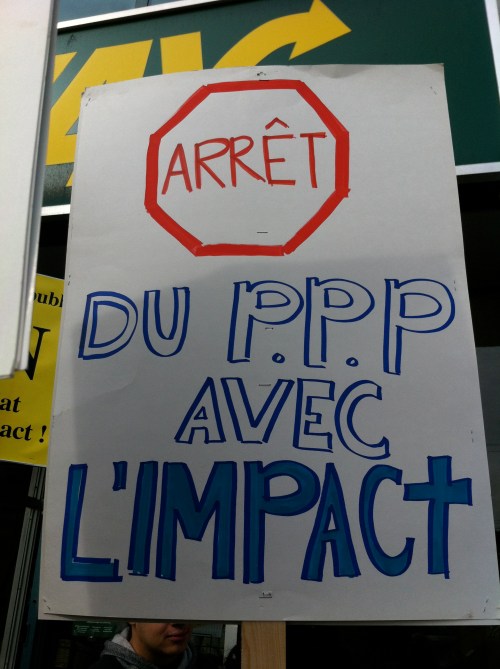 ARRÊT
DU P.P.P
AVEC
L'IMPACT
at
act !